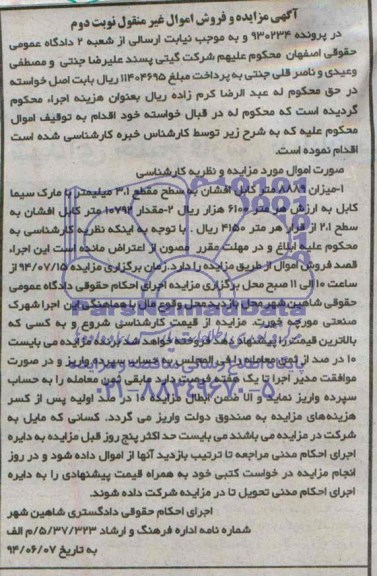 آگهی مزایده و فروش اموال غیر منقول نوبت دوم
در پرونده ۹۳۰۲۳۴ و به موجب نیابت ارسالی از شعبه ۲ دادگاه عمومی
حقوقی اصفهان محکوم علیهم شرکت گیتی پسند علیرضا جنتی و مصطفی
وعیدی و ناصر قلی جنتی به پرداخت مبلغ ۱۱۴۰۴۶۹۵ ریال بابت اصل خواسته
در حق محکوم له عبد الرضا کرم زاده ریال بعنوان هزینه اجراء محکوم
گردیده است که محکوم له در قبال خواسته خود اقدام به توقیف اموال
محکوم علیه که به شرح زیر توسط کارشناس خبره کارشناسی شده است
اقدام نموده است.
صورت اموال مورد مزایده و نظریه کارشناسی
۱-میزان ۸۸۸۹ متر کابل افشان به سطح مقطع ۳.۱ میلیمتر با مارک سیما
کابل به ارزش هر متر ۶۱۰۰ هزار ریال ۲-مقدار ۱۰۷۹۲ متر کابل افشان به
سطح ۲.۱ از قرار هر متر ۴۱۵۰ ریال . با توجه به اینکه نظریه کارشناسی به
محکوم علیه ابلاغ و در مهلت مقرر مصون از اعتراض مانده است این اجراء
قصد فروش اموال از طریق مزایده را دارد.زمان برگزاری مزایده ۹۴/۰۷/۱۵ از
ساعت ۱۰ الی ۱۱ صبح محل برگزاری مزایده اجرای احکام حقوقی دادگاه عمومی
حقوقی شاهین شهر محل بازدید محل وقوع مال با هماهنگی این اجرا شهرک
صنعتی مورچه خورت. مزایده از قیمت کارشناسی شروع و به کسی که
بالاترین قیمت را پیشنهاد دهد فروخته خواهد شد برنده مزایده می بایست
۱۰ در صد از ثمن معامله را فی المجلس به حساب سپرده واریز و در صورت
موافقت مدیر اجرا تا یک هفته فرصت دارد مابقی ثمن معامله را به حساب
سپرده واریز نماید و الا ضمن ابطال مزایده ۱۰ در صد اولیه پس از کسر
هزینه‌های مزایده به صندوق دولت واریز می گردد. کسانی که مایل به
شرکت در مزایده می باشند می بایست حد اکثر پنج روز قبل مزایده به دایره
اجرای احکام مدنی مراجعه تا ترتیب بازدید آنها از اموال داده شود و در روز
انجام مزایده در خواست کتبی خود به همراه قیمت پیشنهادی را به دایره
اجرای احکام مدنی تحویل تا در مزایده شرکت داده شوند.
اجرای احکام حقوقی دادگستری شاهین شهر
شماره نامه اداره فرهنگ و ارشاد ۵/۳۷/۳۲۳/م الف
به تاریخ ۹۴/۰۶/۰۷
ParsNamadData
۰۲۱-۸۸۳۴۹۶۷۰-۵